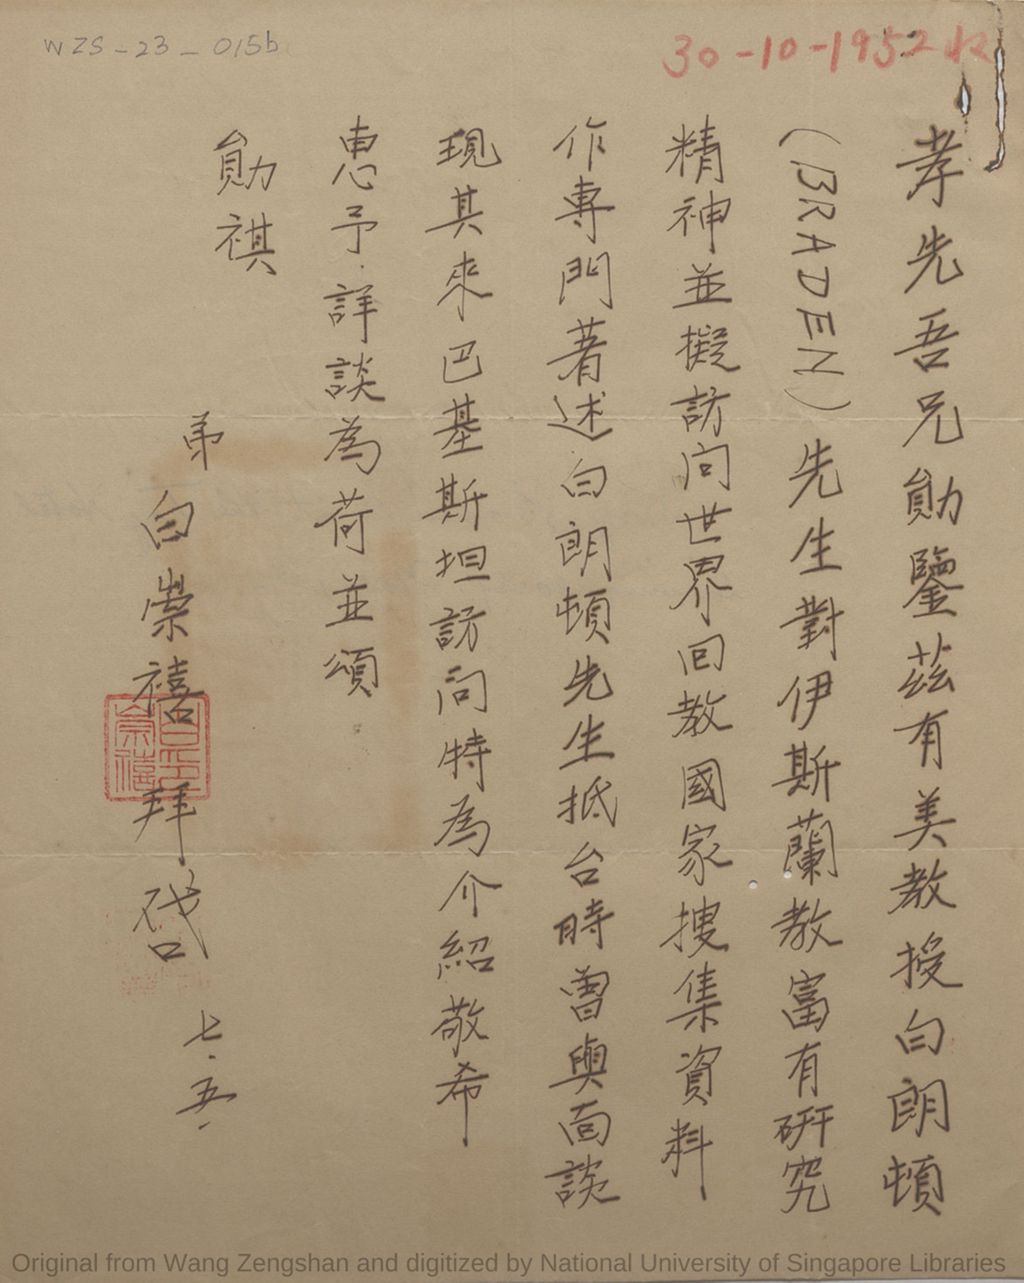 WZS-23-015b
30-10-1952
孝先吾兄勛鑒茲有美教授白朗頓
(BRADEN)先生對伊斯蘭教富有研究
精神並擬訪问世界回教國家搜集資料
作專門著述白朗頓先生抵台時曾與面談
現其來巴基斯坦訪问特為介紹敬希
惠予詳談為荷並頌
勛祺
弟白崇禧拜啓
七.五.
白崇禧印
Original from Wang Zengshan and digitized by National University of Singapore Libraries